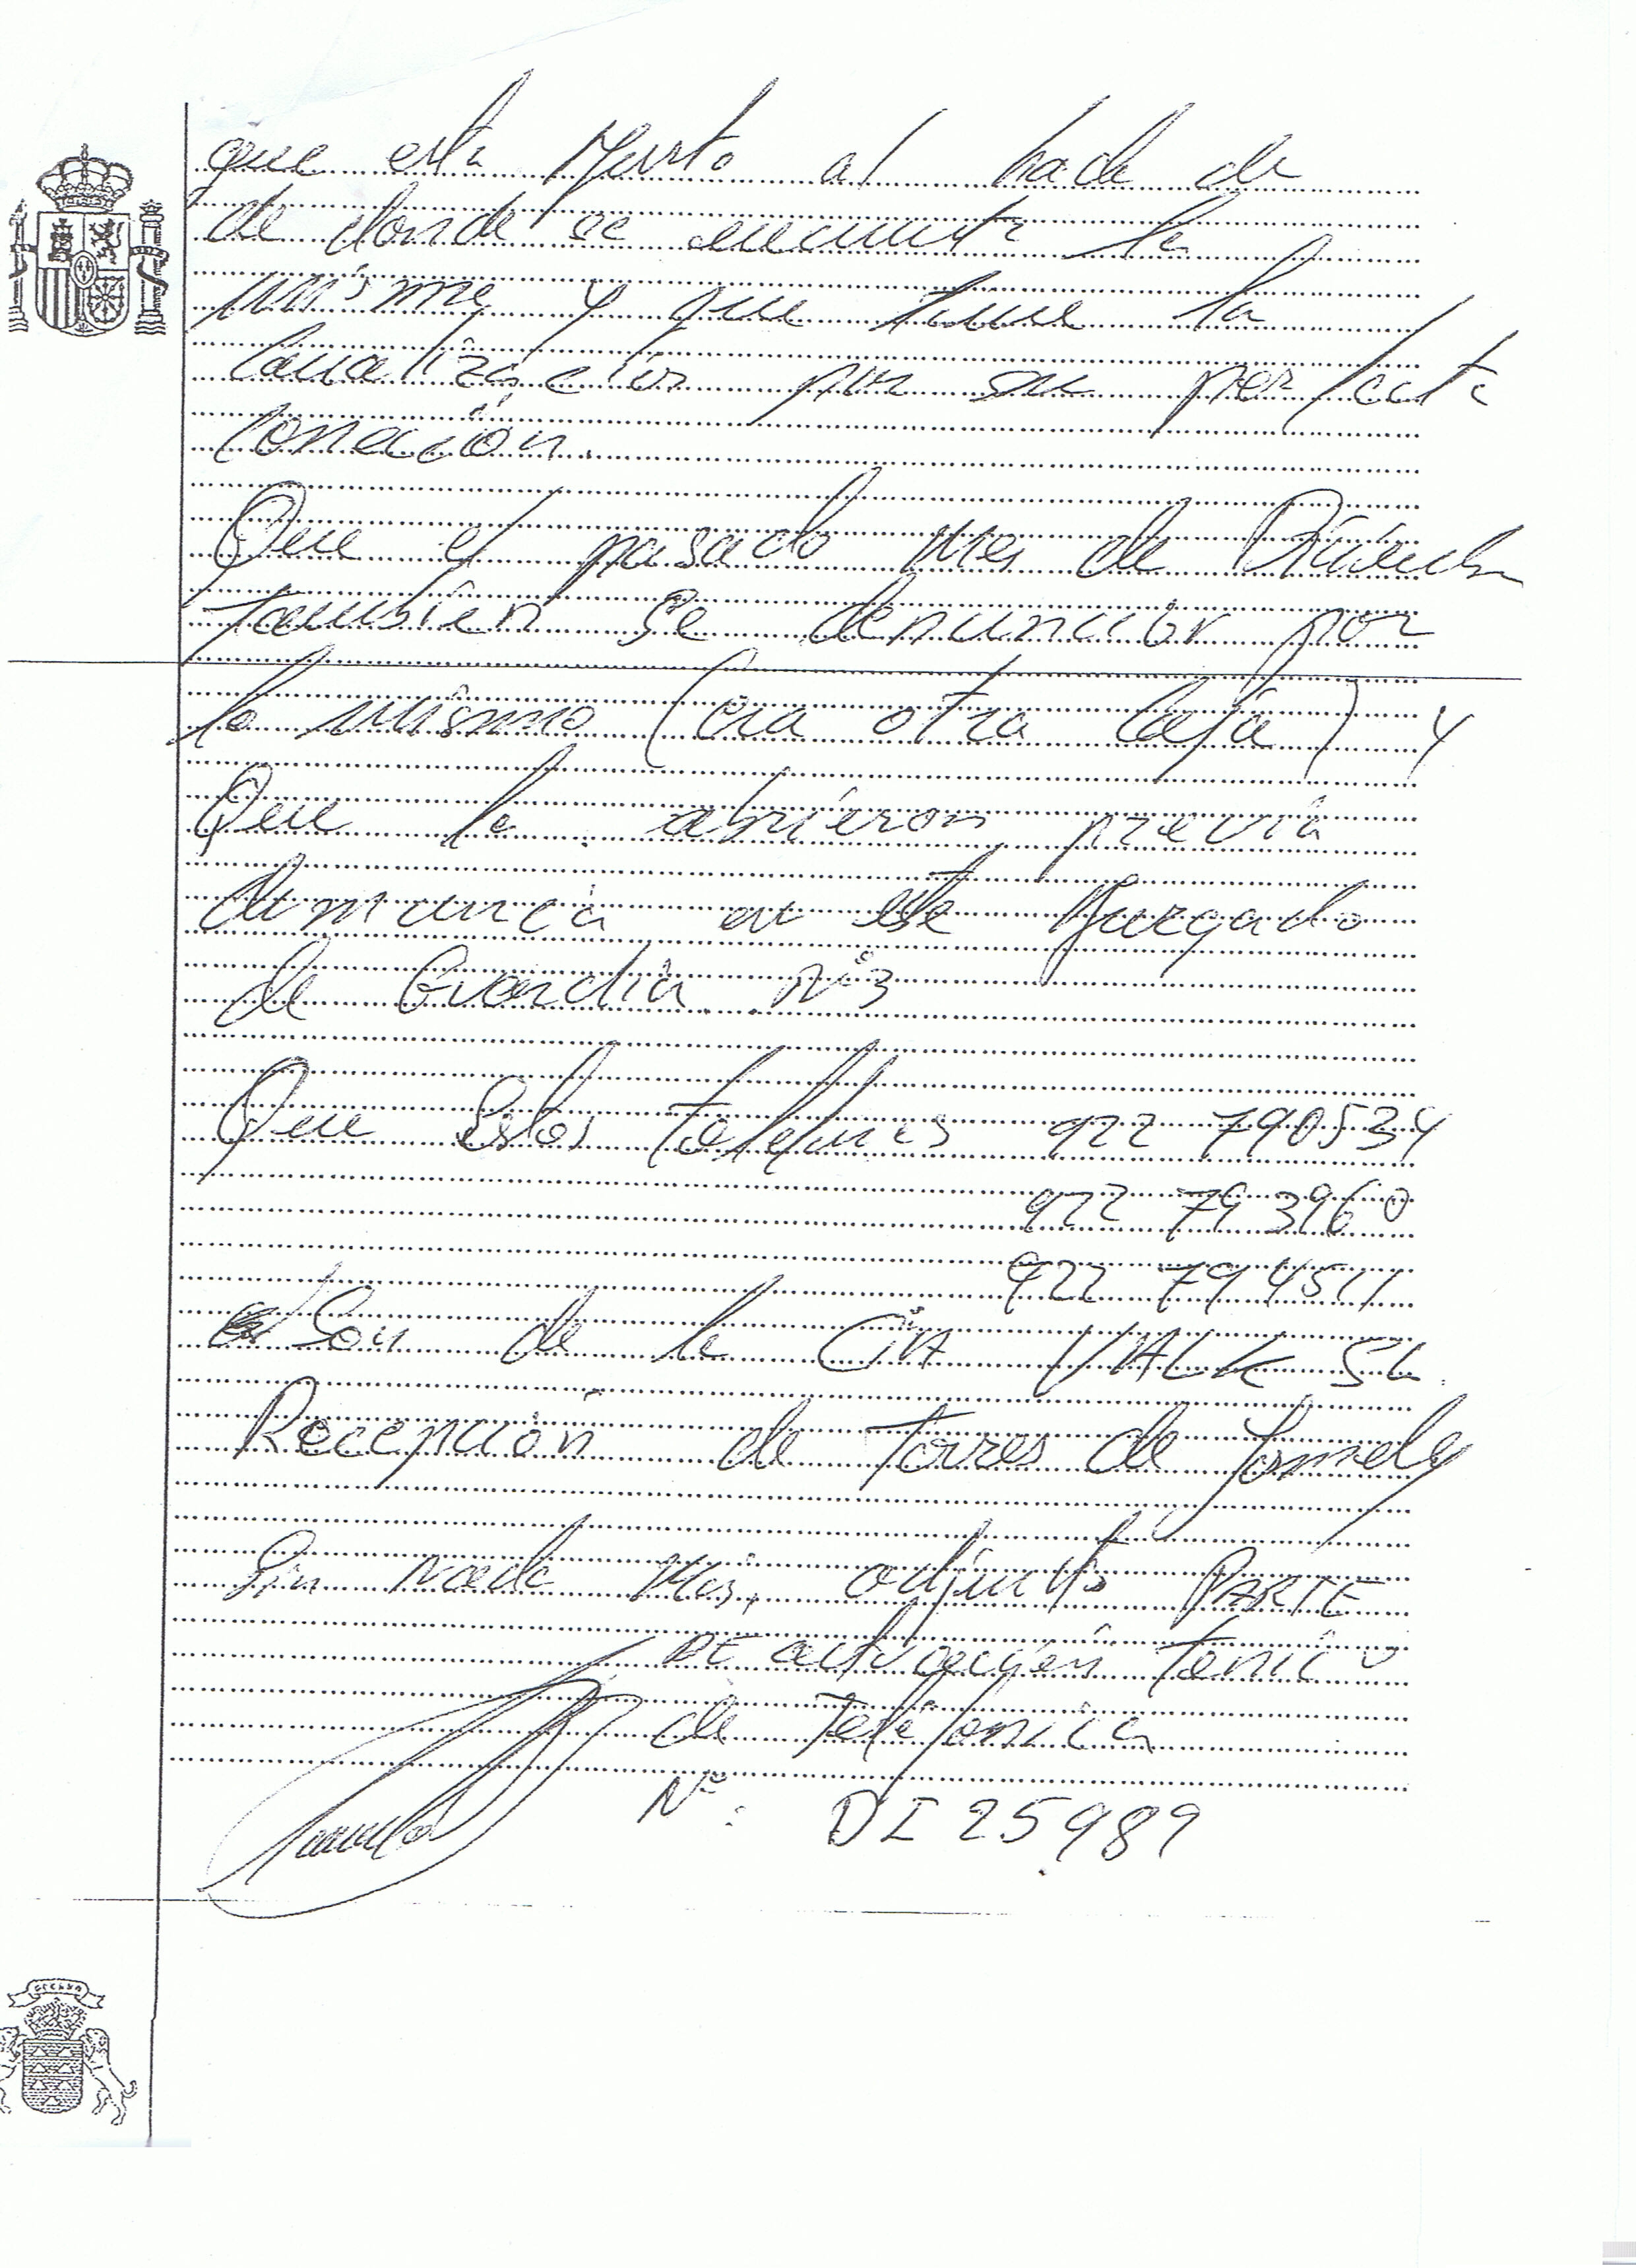 que esta Justo al lado de
de donde se encuentra la
misma y que tiene la
canalización por su perfecta
conección.
Que el pasado mes de
tambien se denunción por
lo mismo (era otra caja) y
Que la abrieron previa
denuncia en este Juzgado
de Guardia Nº3
Que Estos Telefonos 922 790534
922 793960
922 794511
Son de la CIA VALK SL.
Recepción de Torres de Yomely
Sin nada Mas, adjunto PARTE
DE actuación Tenico
de Telefonica
Nº: DI 25989